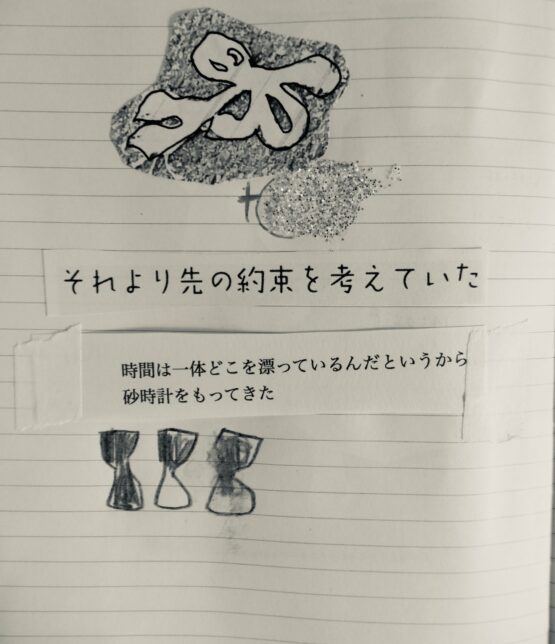 それより先の約束を考えていた
時間は一体どこを漂っているんだというから
砂時計をもってきた